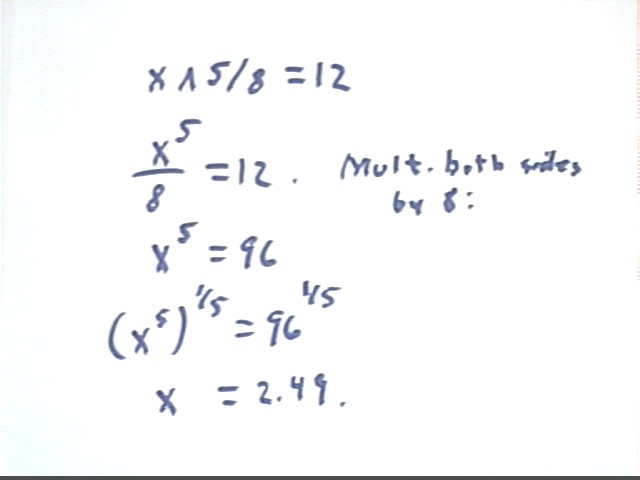 x ∧ 5/8 = 12
x^5/8 = 12. Mult. both sides
by 8:
x^5 = 96
(x^5)^1/5 = 96^1/5
x = 2.49.